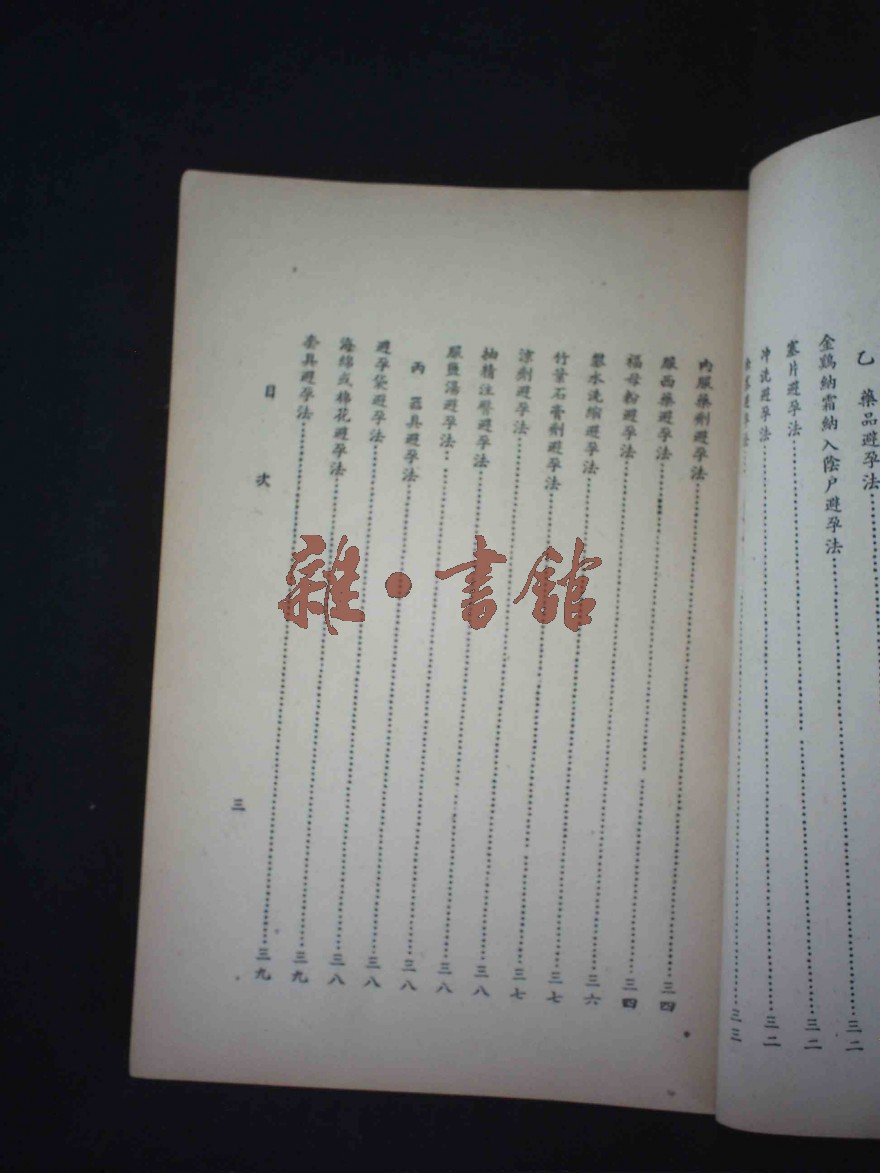 乙 藥品避孕法
金鷄納霜納入陰户避孕法……三二
塞片避孕法……三二
冲洗避孕法……三二
避孕法……三三
内服藥劑避孕法……三四
服西藥避孕法……三四
福母粉避孕法……三六
礬水洗缩避孕法……三七
竹葉石膏劑避孕法……三七
涼劑避孕法……三八
抽精注臀避孕法……三八
服鹽湯避孕法……三八
丙 器具避孕法……三八
避孕袋避孕法……三八
海綿或棉花避孕法……三九
套具避孕法……三九
目次
三
雜·書館